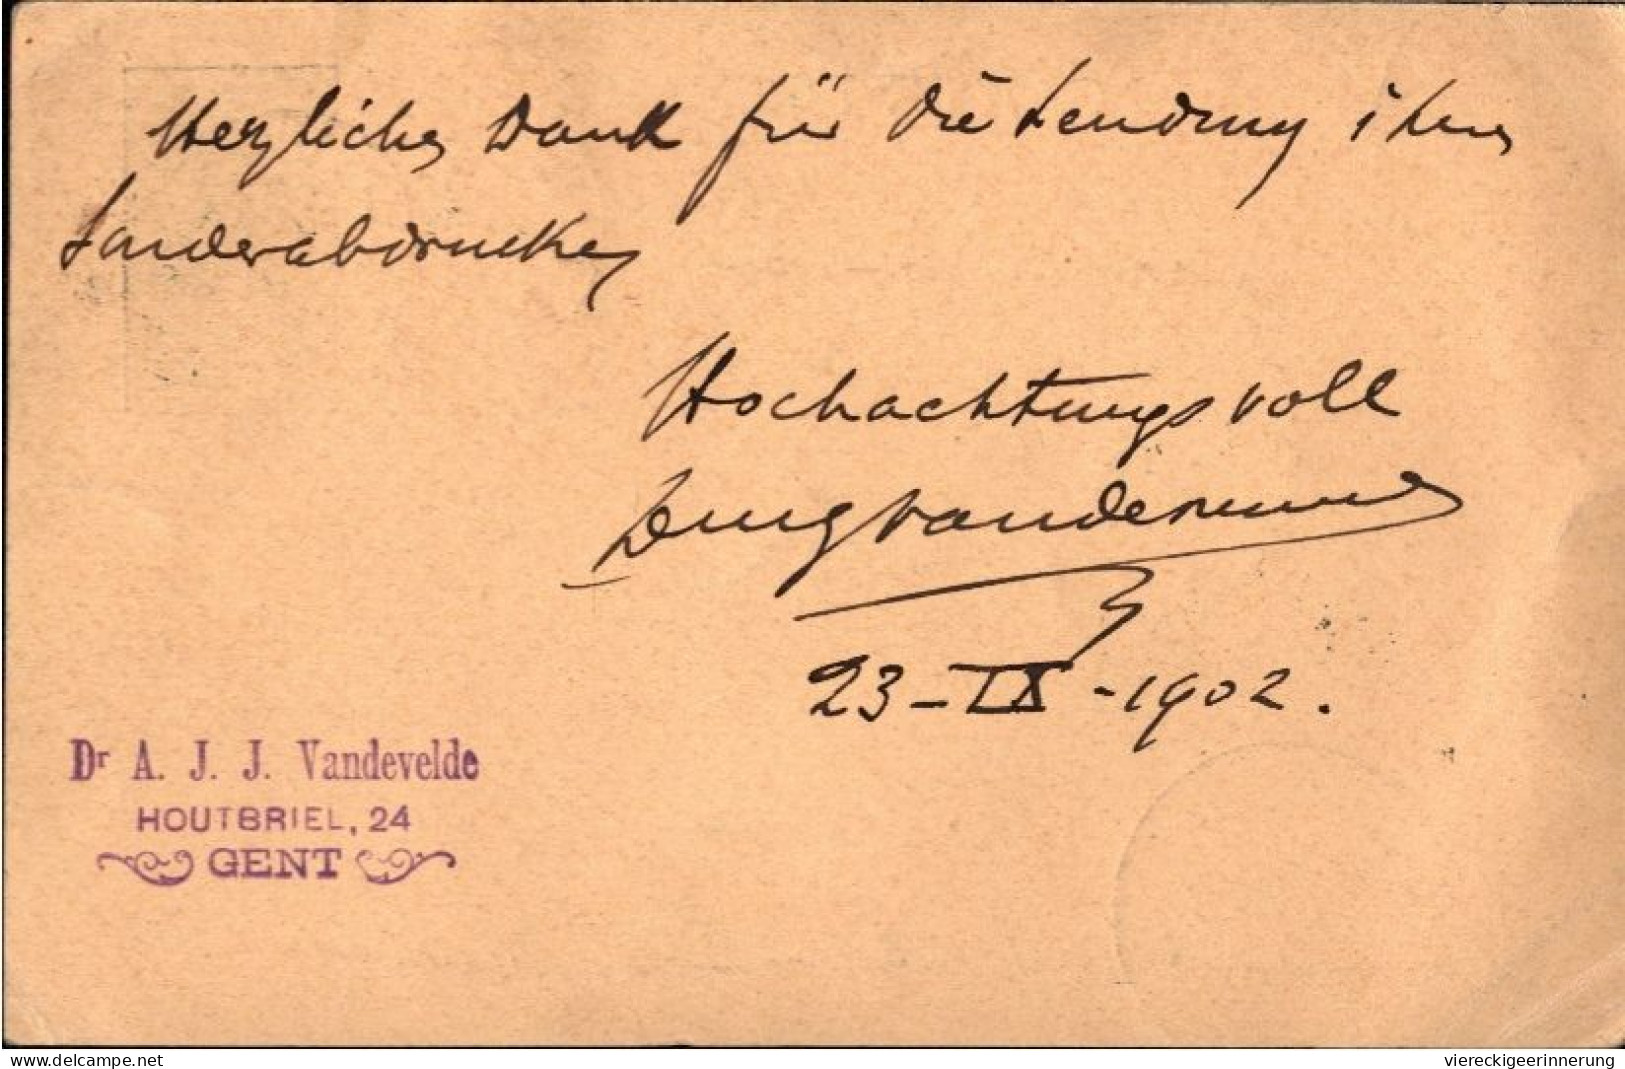 Herzlichen Dank für die Sendung ihrer
Sonderabdrucke,
Hochachtungsvoll
23-IX-1902.
Dr A. J. J. Vandevelde
HOUTBRIEL, 24
GENT
www.delcampe.net
viereckigeerinnerung